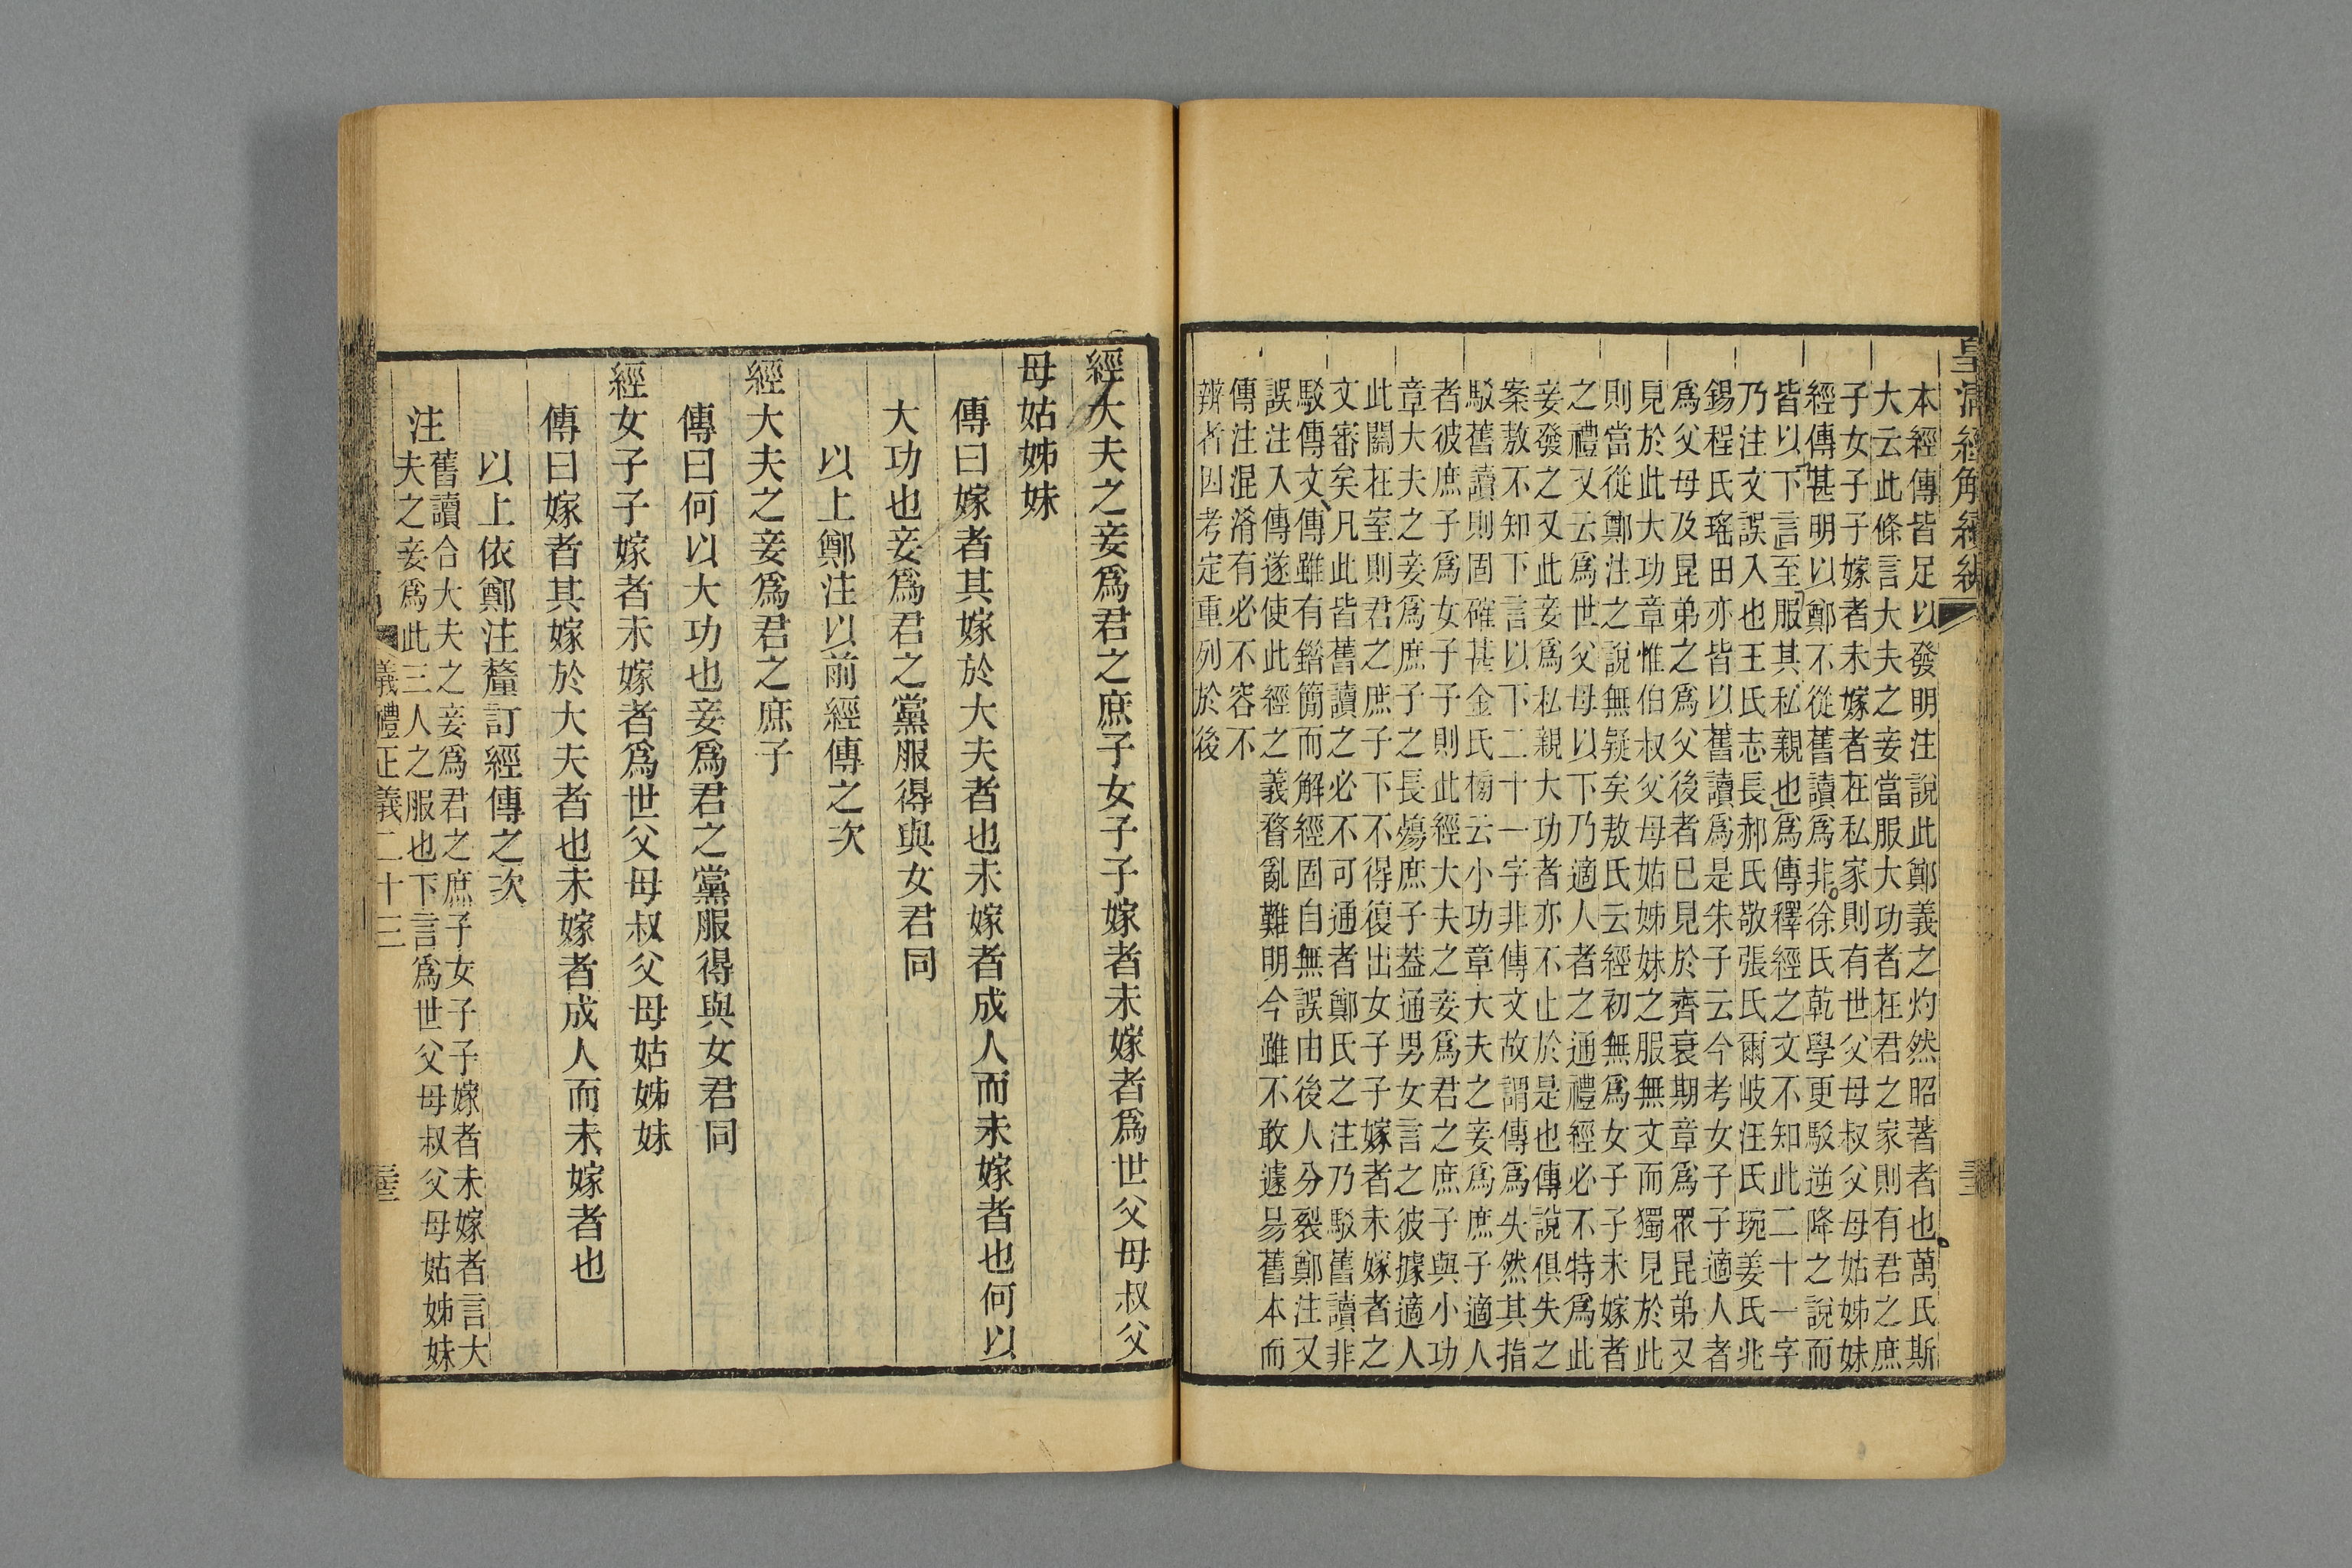 皇清經解續編
本經傳皆足以發明注說此鄭義之灼然昭著者也萬氏斯
大云此條言大夫之妾當服大功者在君之家則有君之庶
子女子子嫁者未嫁者在私家則有世父母叔父母姑姊妹
經傳甚明以鄭不從舊讀爲非徐氏乾學更駁逆降之說而
皆以下言至服其私親也爲傳釋經之文不知此二十一字
乃注文誤入也王氏志長郝氏敬張氏爾岐汪氏琬姜氏兆
錫程氏瑤田亦皆以舊讀爲是朱子云今考女子子適人者
爲父母及昆弟之爲父後者已見於齊衰期章爲眾昆弟又
見於此大功章惟伯叔父母姑姊妹之服無文而獨見於此
則當從鄭注之說無疑矣敖氏云經初無爲女子子未嫁者
之禮又云爲世父母以下乃適人者之通禮經必不特爲此
妾發之又此妾爲私親大功者亦不止於是也傳說俱失之
案敖不知下言以下二十一字非傳文故謂傳爲失然其指
駁舊讀則固確甚金氏榜云小功章大夫之妾爲庶子適人
者彼庶子爲女子子則此經大夫之妾爲君之庶子與小功
章大夫之妾爲庶子之長殤庶子蓋通男女言之彼據適人
此關在室則君之庶子下不得復出女子子嫁者未嫁者之
文審矣凡此皆舊讀之必不可通者鄭氏之注乃駁舊讀非
駁傳文傳雖有錯簡而解經固自無誤由後人分裂鄭注又
誤注入傳遂使此經之義瞀亂難明今雖不敢遽易舊本而
傳注混淆有必不容不
辨者因考定重列於後
經大夫之妾爲君之庶子女子子嫁者未嫁者爲世父母叔父
母姑姊妹
傳曰嫁者其嫁於大夫者也未嫁者成人而未嫁者也何以
大功也妾爲君之黨服得與女君同
以上鄭注以前經傳之次
經大夫之妾爲君之庶子
傳曰何以大功也妾爲君之黨服得與女君同
經女子子嫁者未嫁者爲世父母叔父母姑姊妹
傳曰嫁者其嫁於大夫者也未嫁者成人而未嫁者也
以上依鄭注釐訂經傳之次
注舊讀合大夫之妾爲君之庶子女子子嫁者未嫁者言大
夫之妾爲此三人之服也下言爲世父母叔父母姑姊妹
儀禮正義二十三